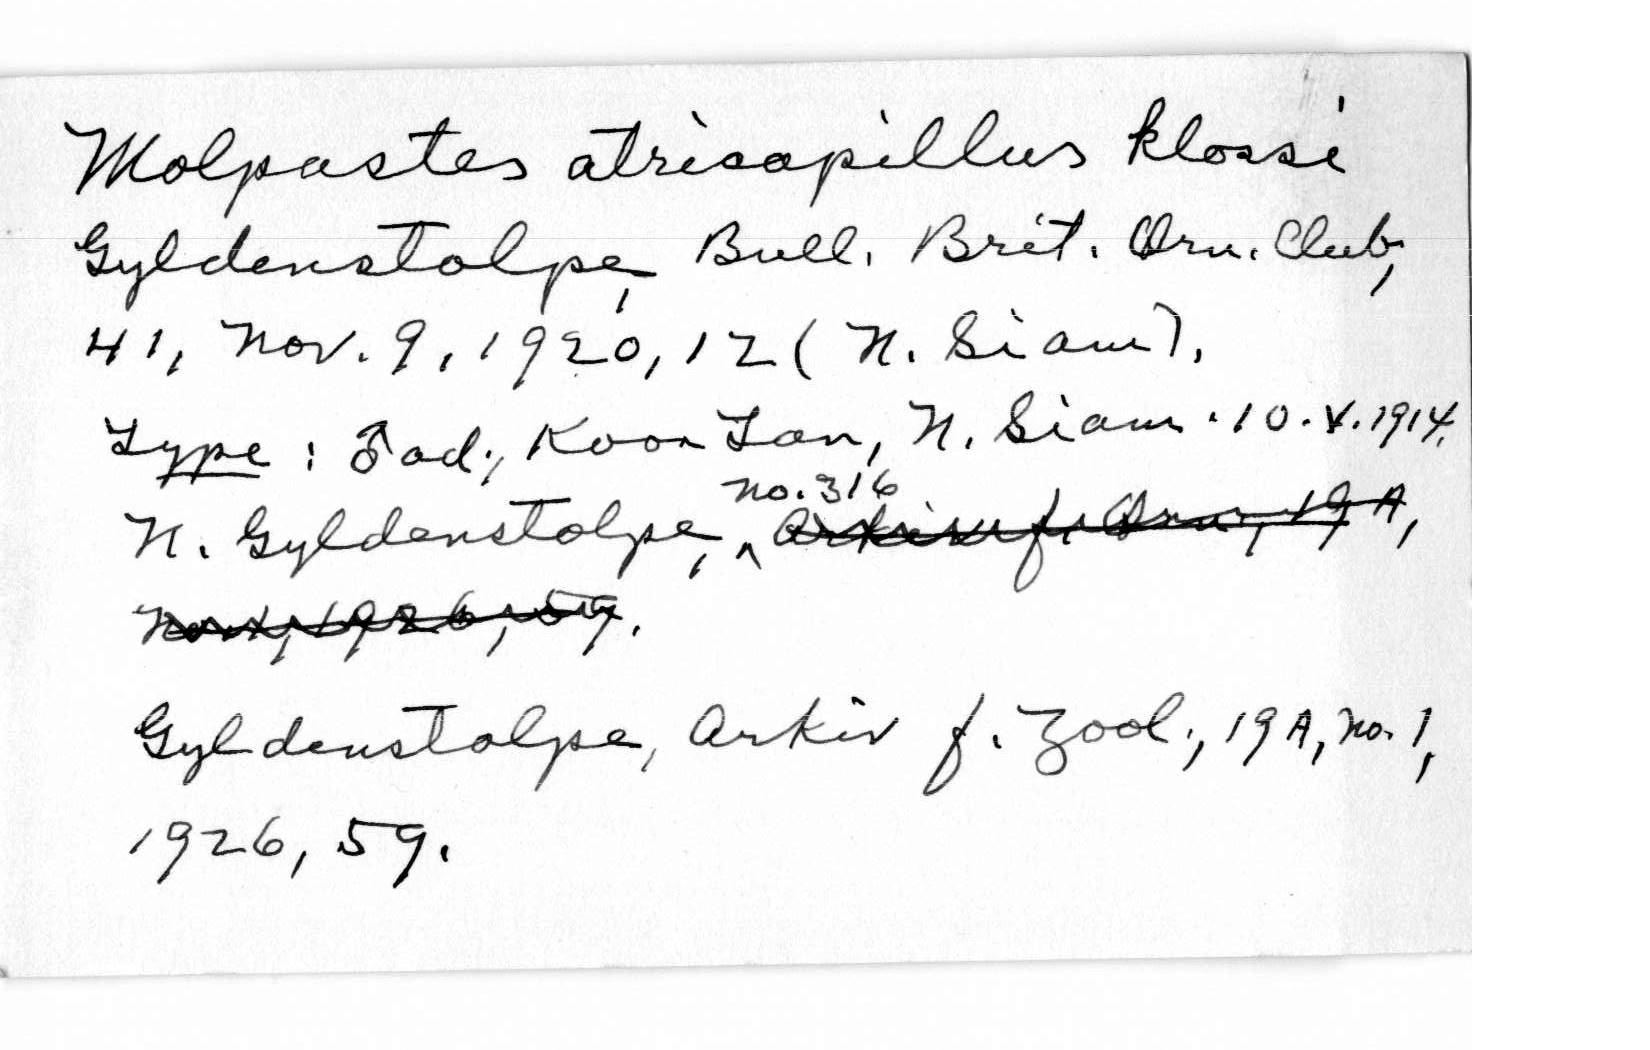 Molpastes atricapillus klossi
Gyldenstolpe, Bull. Brit. Orn. Club,
41, Nov. 9, 1920, 12 (N. Siam).
Type: ♂ ad., Koon Tan, N. Siam. 10.V.1914.
N. Gyldenstolpe, no. 316 Arkiv f. Orn., 19A,
No. 1, 1926, 59.
Gyldenstolpe, Arkiv f. Zool., 19A, no. 1,
1926, 59.